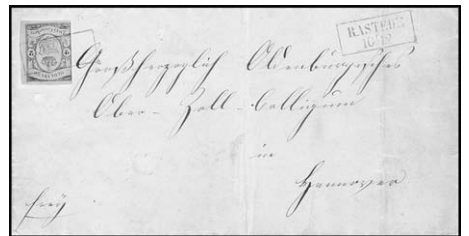 RASTEDE
10 12
Großherzoglich Oldenburgisches
Ober-Zoll-Collegium
in
Hannover
frey